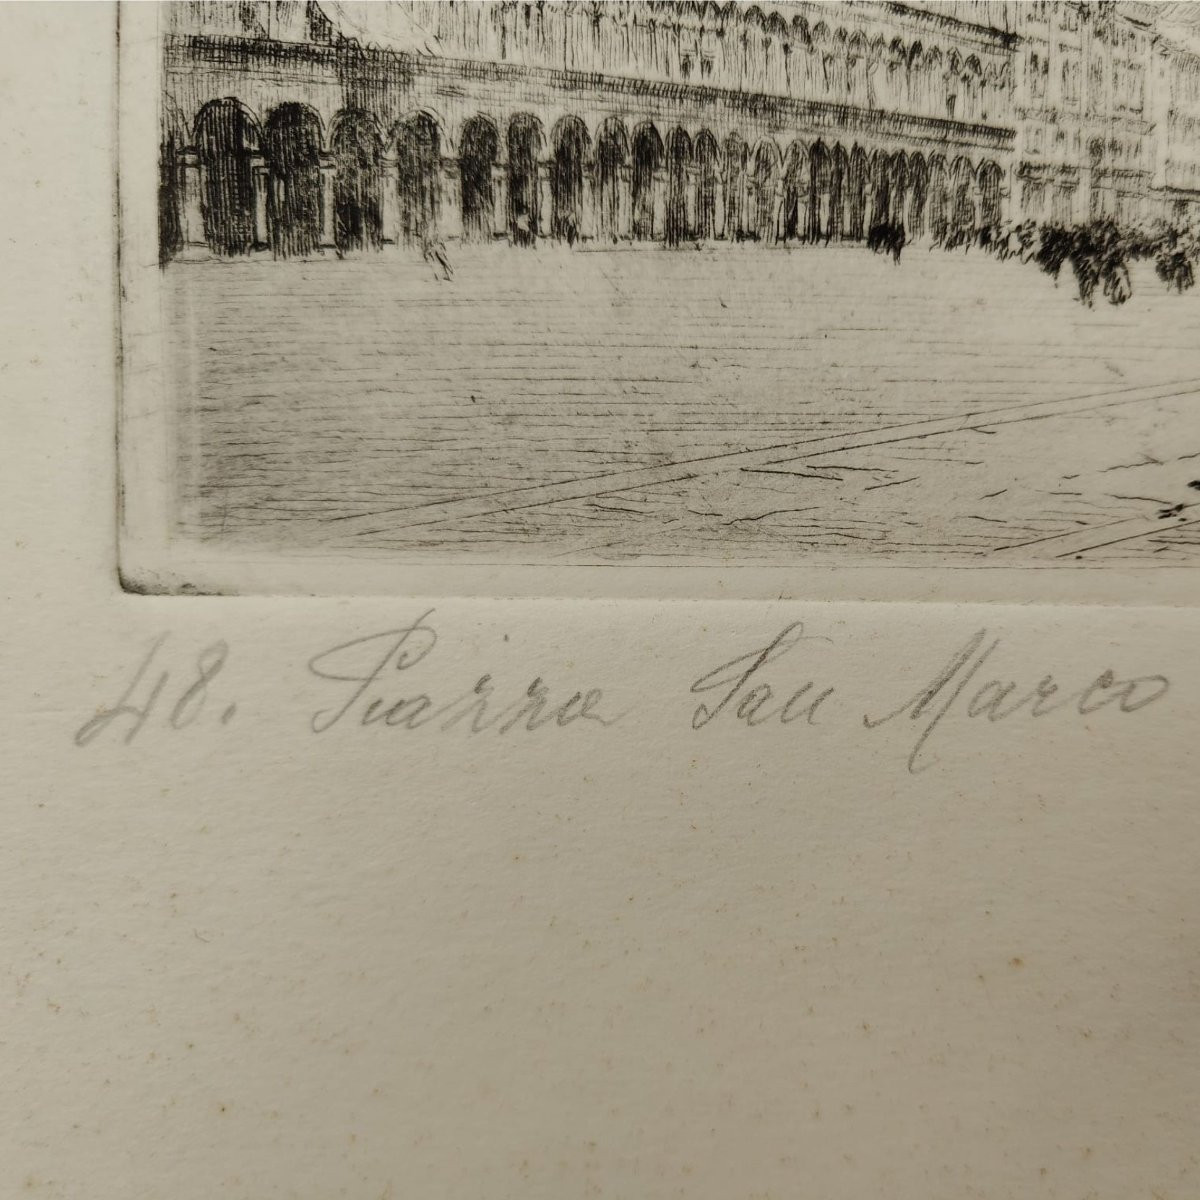 48. Piazza San Marco